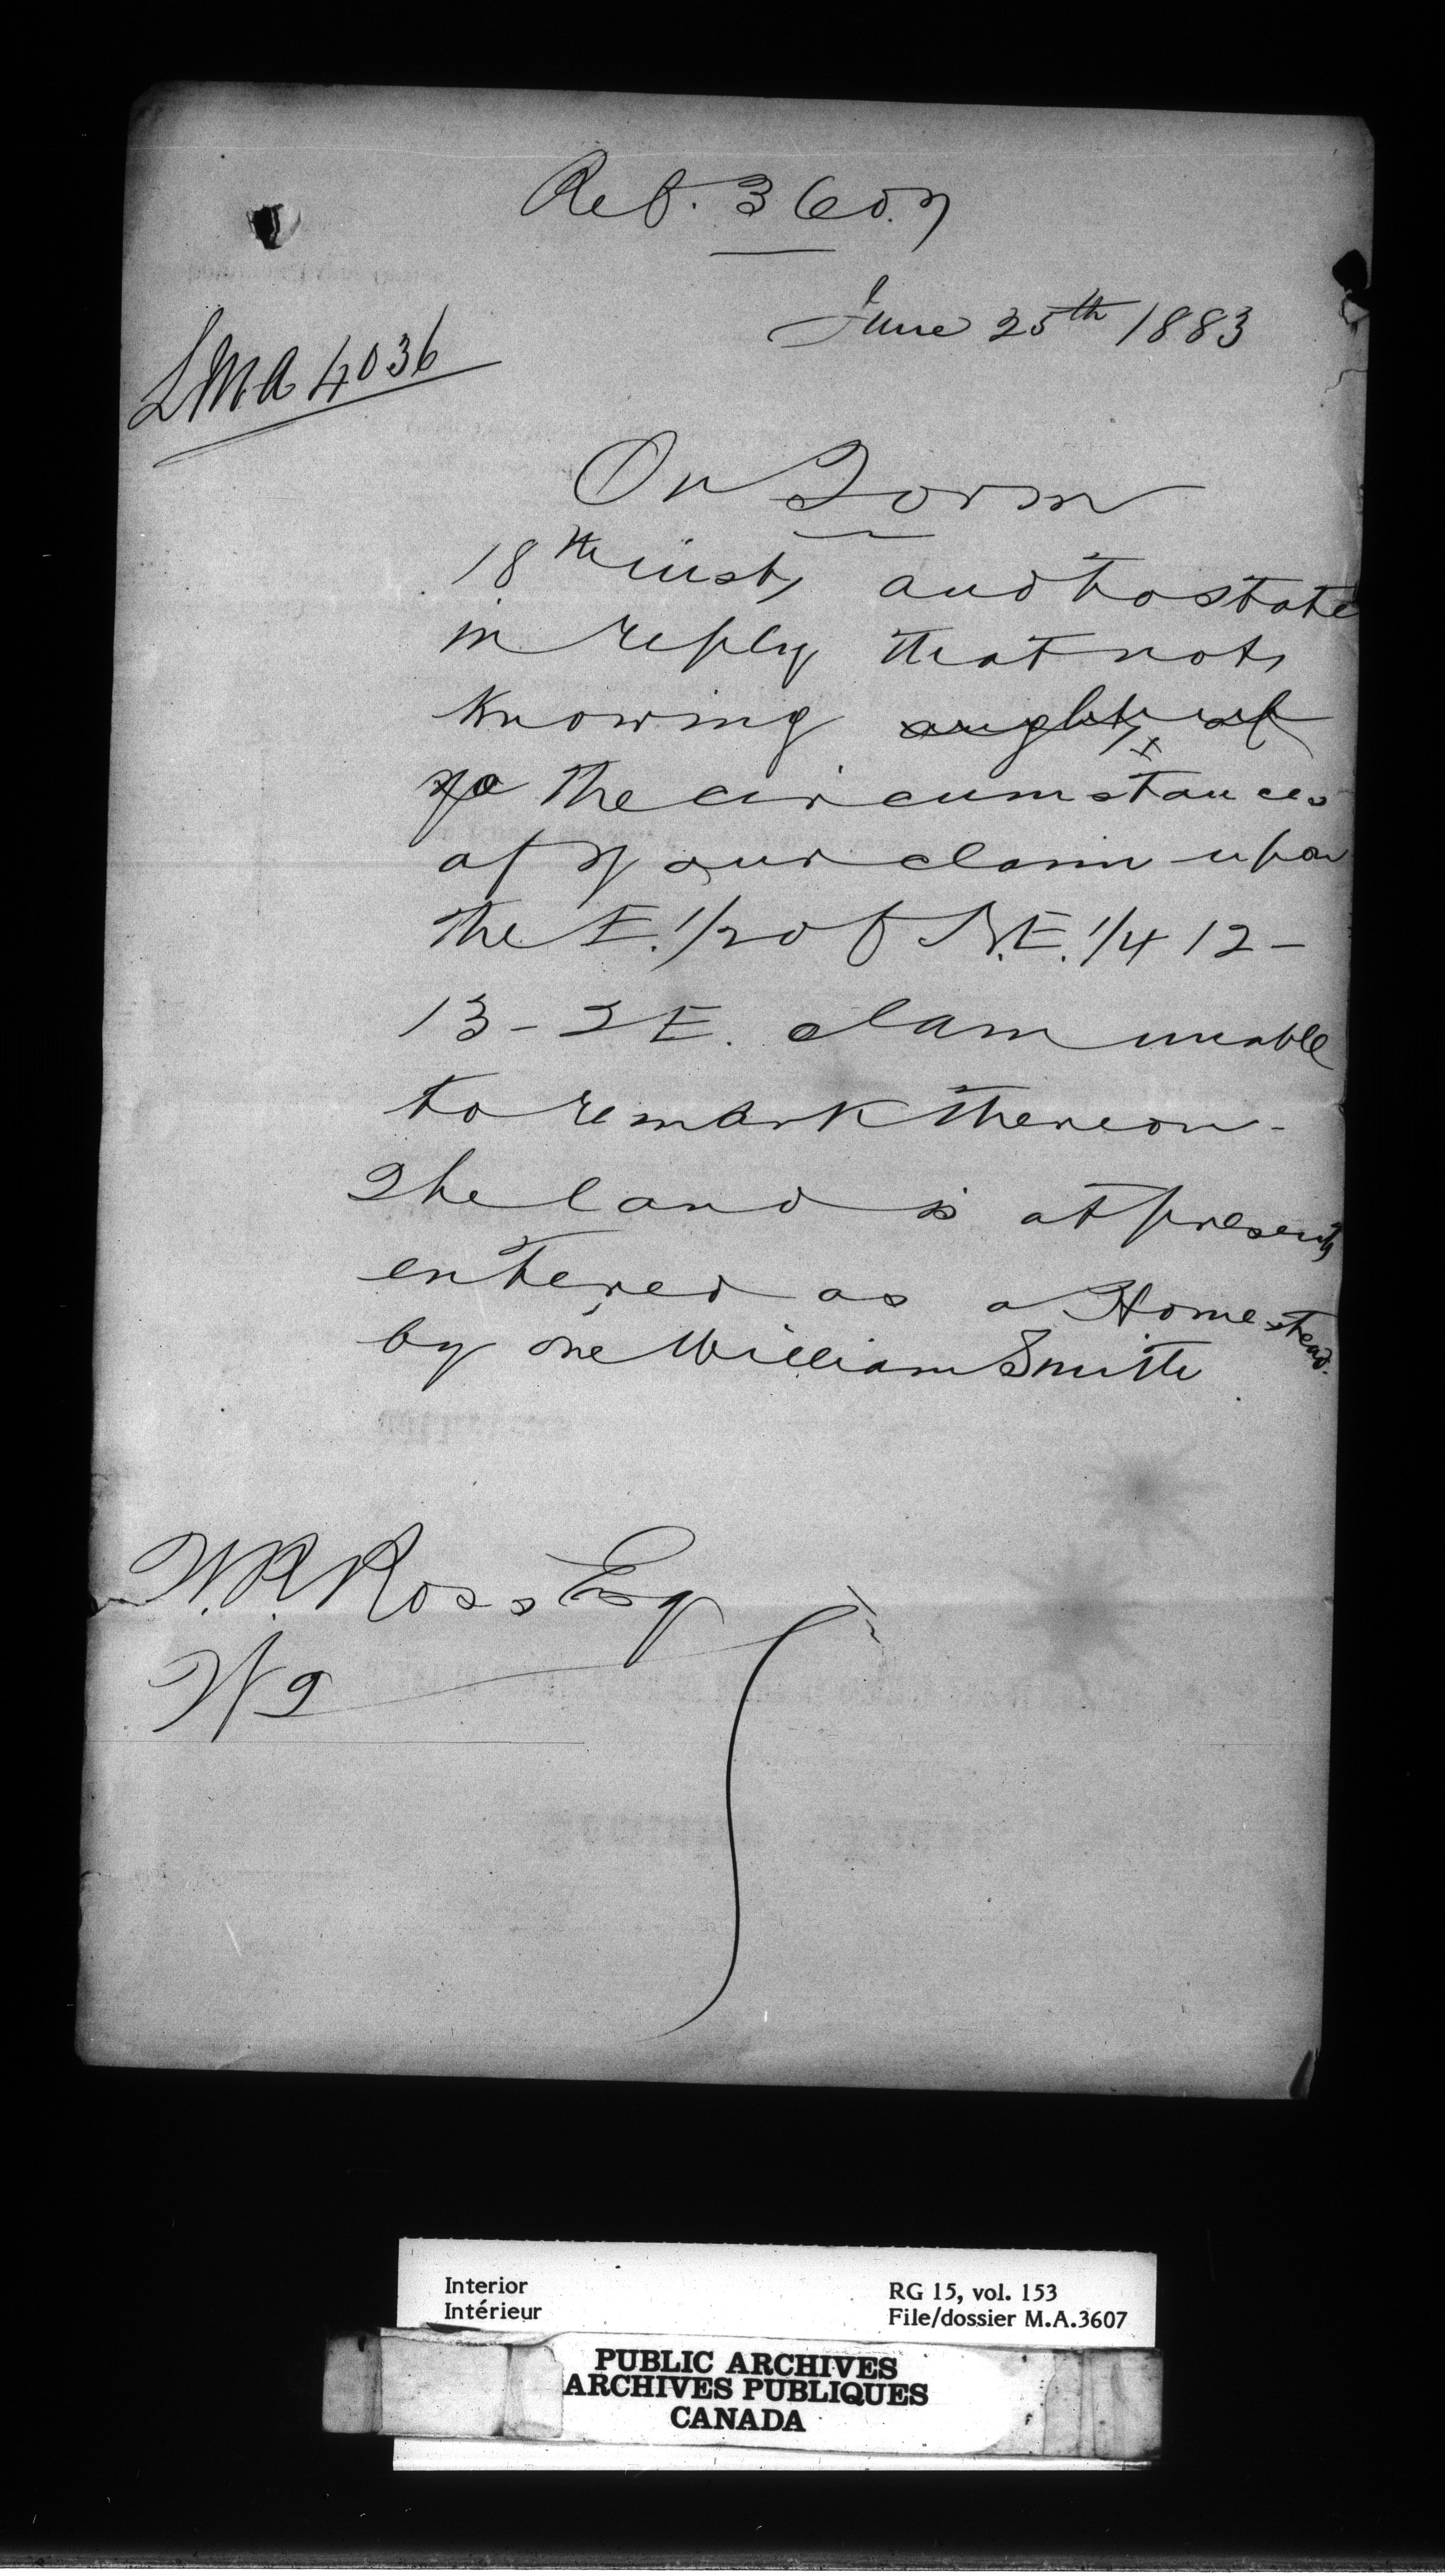 Ref. 3607
June 25th 1883
LMA 4036
On Form
18th inst, and to state
in reply that not
knowing aught of
the circumstances
of your claim upon
the E. 1/2 of N.E. 1/4 12 -
13 - 2 E. I am unable
to remark thereon -
The land is at present
entered as a Homestead
by one William Smith
W. R. Ross Esq
Interior
Intérieur
RG 15, vol. 153
File/dossier M.A.3607
PUBLIC ARCHIVES
ARCHIVES PUBLIQUES
CANADA